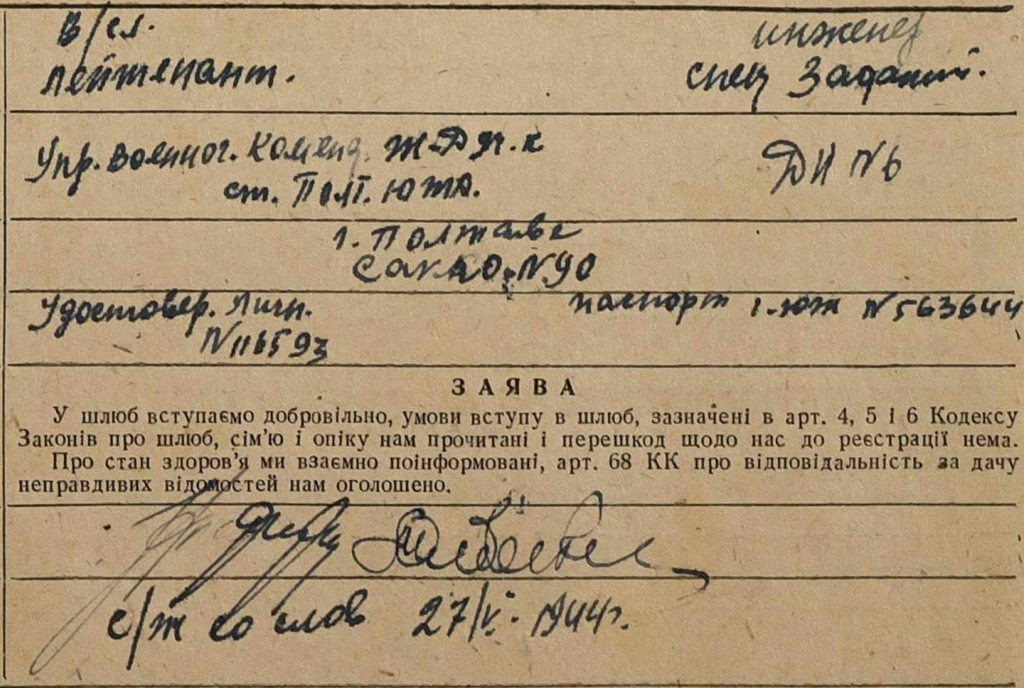 в/сл. инженер
лейтенант. спец Заданий.
Упр. военног. Коменд. Ж-Д уч. к
ст. Полт. южн. ДН №6
г. Полтаве
Сакко №90
Удостовер. Личн. паспорт №563644
№116593
ЗАЯВА
У шлюб вступаємо добровільно, умови вступу в шлюб, зазначені в арт. 4, 5 і 6 Кодексу
Законів про шлюб, сім'ю і опіку нам прочитані і перешкод щодо нас до реєстрації нема.
Про стан здоров'я ми взаємно поінформовані, арт. 68 КК про відповідальність за дачу
неправдивих відомостей нам оголошено.
с/ж со слов 27/V. 1944г.